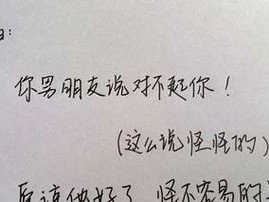 你男朋友说对不起你！
（这么说怪怪的）
原谅他好了，怪不容易的